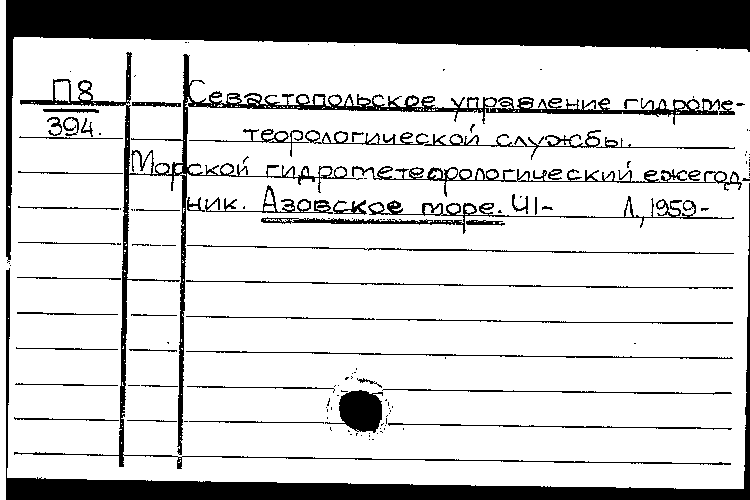 П8 Севастопольское управление гидроме-
394. теорологической службы.
Морской гидрометеорологический ежегод-
ник. Азовское море. Ч1- Л., 1959-